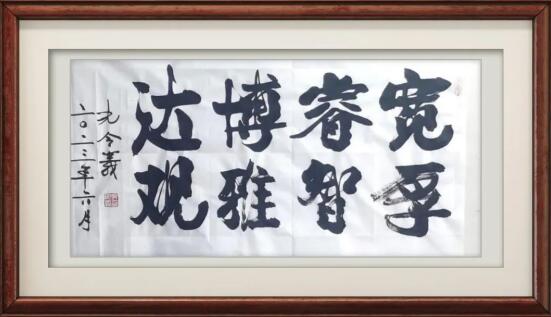 宽厚
睿智
博雅
达观
令義
二〇二三年六月